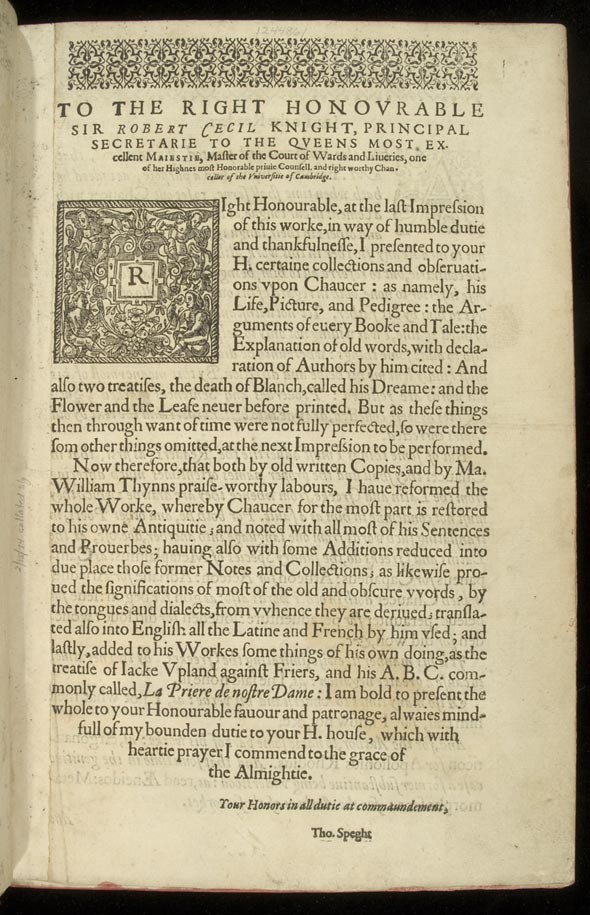 TO THE RIGHT HONOVRABLE
SIR ROBERT CECIL KNIGHT, PRINCIPAL
SECRETARIE TO THE QVEENS MOST EX-
cellent MAIESTIE, Maſter of the Court of Wards and Liueries, one
of her Highnes moſt Honorable priuie Counſell, and right worthy Chan-
cellor of the Vniuerſitie of Cambridge.
RIght Honourable, at the laſt Impreſsion
of this worke, in way of humble dutie
and thankfulneſſe, I preſented to your
H. certaine collections and obſeruati-
ons vpon Chaucer : as namely, his
Life, Picture, and Pedigree : the Ar-
guments of euery Booke and Tale: the
Explanation of old words, with decla-
ration of Authors by him cited : And
alſo two treatiſes, the death of Blanch, called his Dreame: and the
Flower and the Leafe neuer before printed. But as theſe things
then through want of time were not fully perfected, ſo were there
ſom other things omitted, at the next Impreſsion to be performed.
Now therefore, that both by old written Copies, and by Ma.
William Thynns praiſe-worthy labours, I haue reformed the
whole Worke, whereby Chaucer for the moſt part is reſtored
to his owne Antiquitie ; and noted with all moſt of his Sentences
and Prouerbes ; hauing alſo with ſome Additions reduced into
due place thoſe former Notes and Collections ; as likewiſe pro-
ued the ſignifications of moſt of the old and obſcure vvords , by
the tongues and dialects, from vvhence they are deriued ; tranſla-
ted alſo into Engliſh all the Latine and French by him vſed ; and
laſtly, added to his Workes ſome things of his own doing, as the
treatiſe of Iacke Vpland againſt Friers, and his A. B. C. com-
monly called, La Priere de noſtre Dame : I am bold to preſent the
whole to your Honourable fauour and patronage, alwaies mind-
full of my bounden dutie to your H. houſe , which with
heartie prayer I commend to the grace of
the Almightie.
Your Honors in all dutie at commaundement,
Tho. Speght